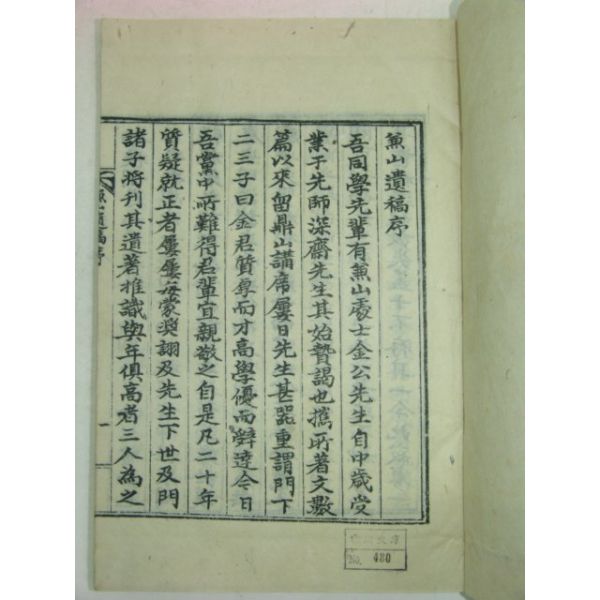 兼山遺稿序
吾同學先輩有兼山處士金公先生自中歲受
業于先師深齋先生其始贄謁也擕所著文數
篇以來留鼎山講席屢日先生甚器重謂門下
二三子曰金君質厚而才高學優而辭達今日
吾黨中所難得君輩宜親敬之自是凡二十年
質疑就正者屢屢每蒙奬詡及先生下世及門
諸子將刊其遺著推識與年俱高者三人為之
山遺稿序
一
No. 480